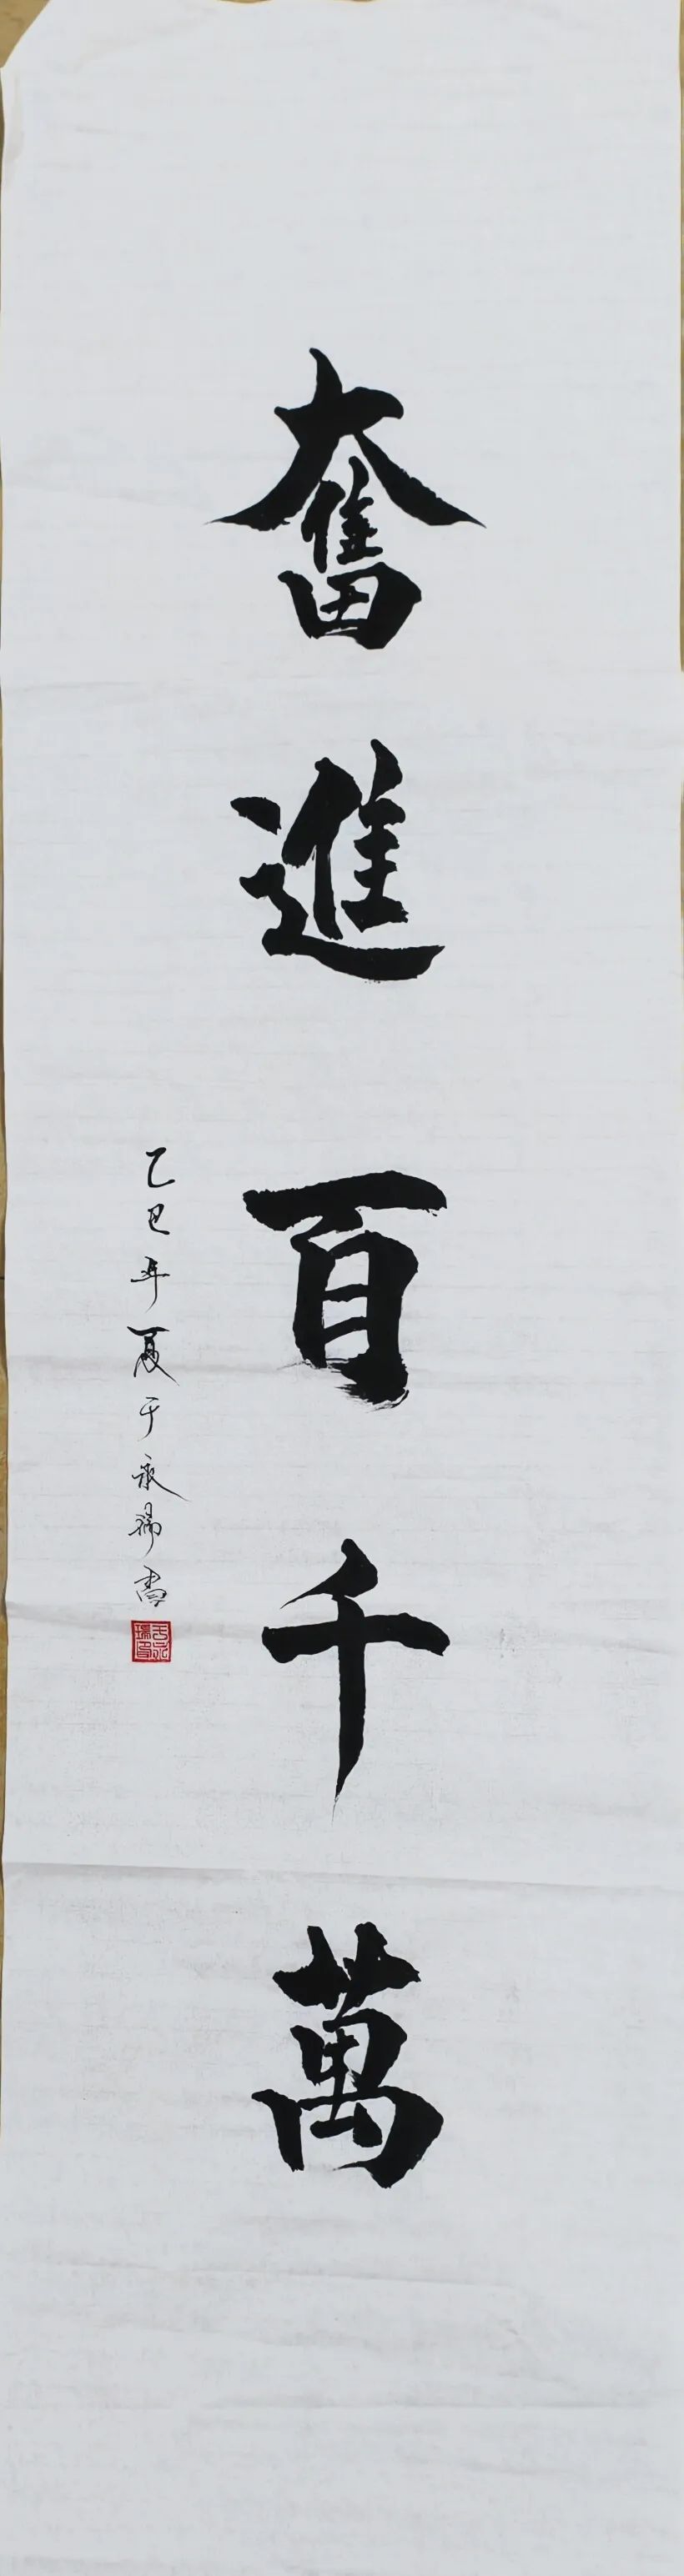 奮進百千萬
乙巳年夏于永瑞書